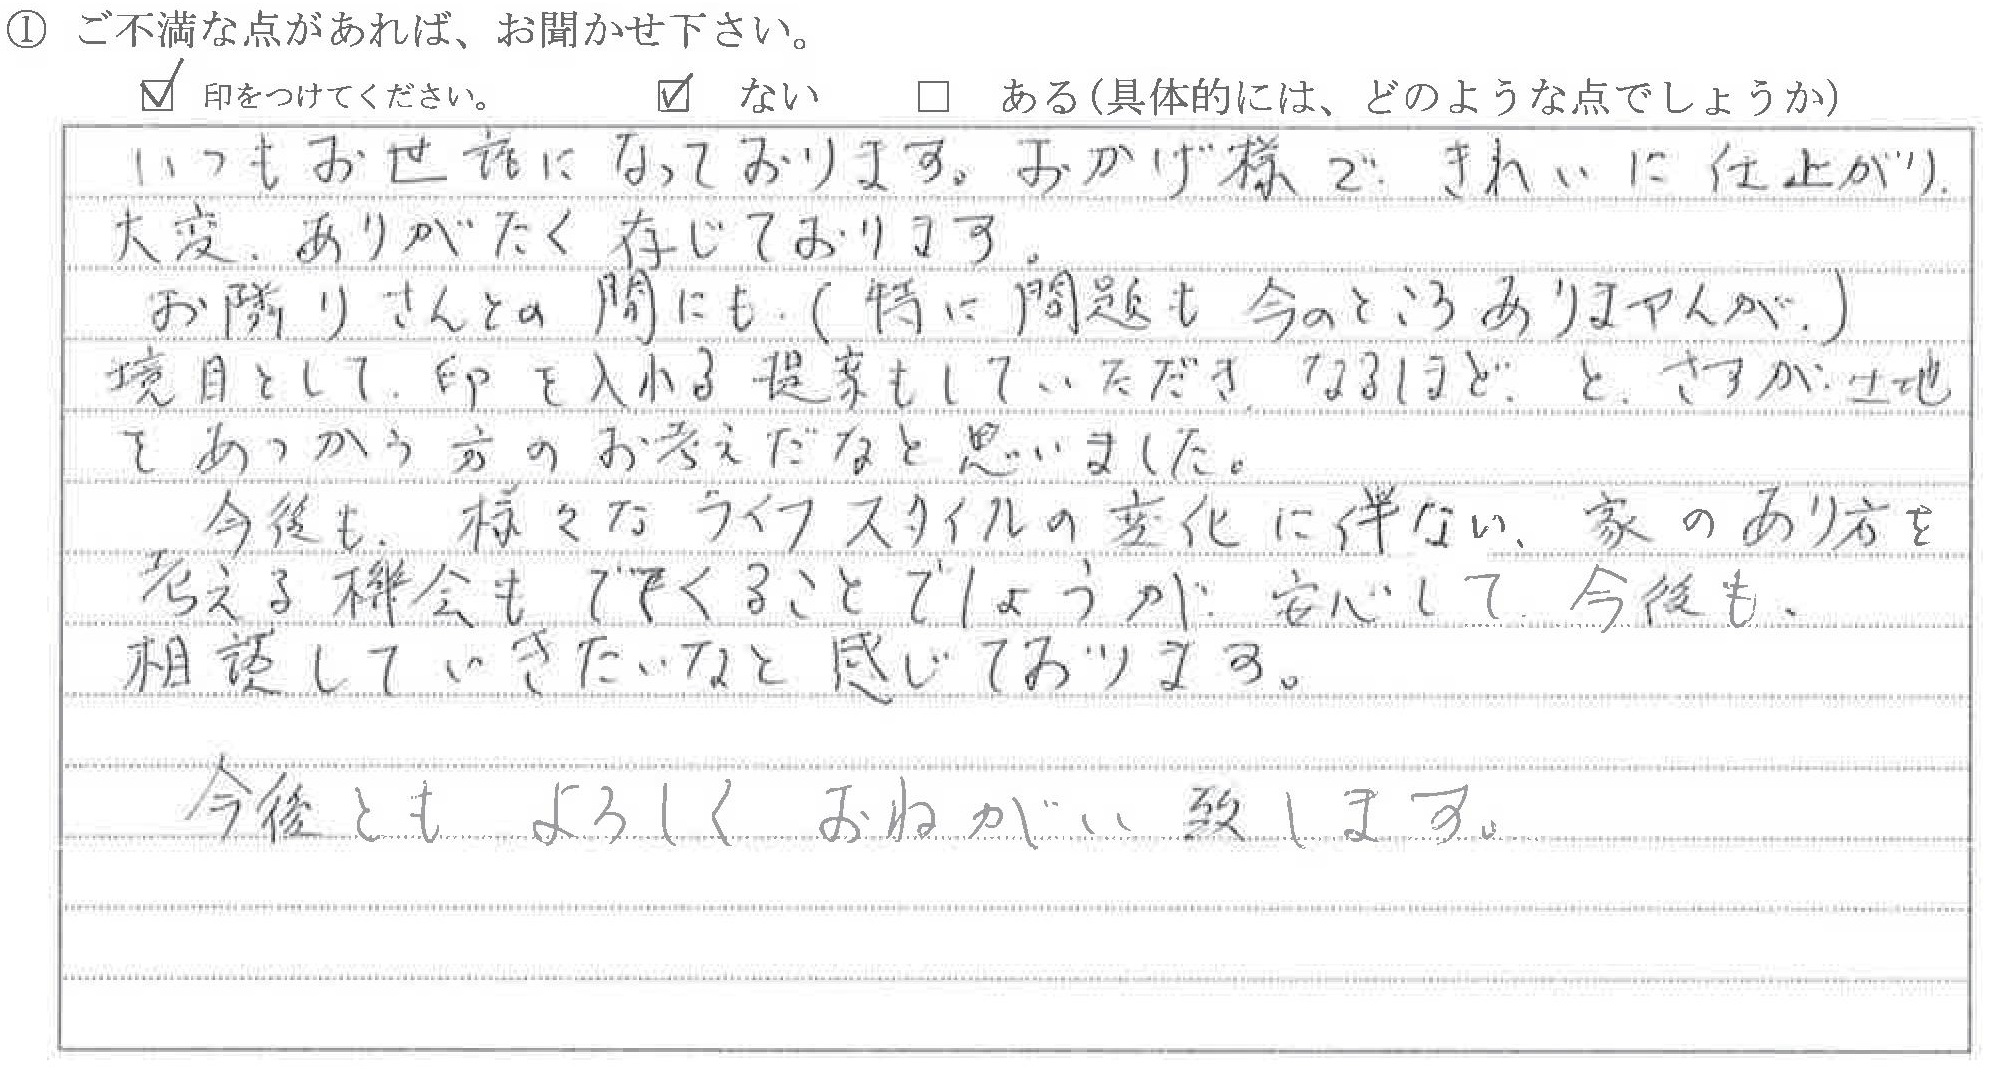 ① ご不満な点があれば、お聞かせ下さい。
☑ 印をつけてください。 ☑ ない □ ある(具体的には、どのような点でしょうか)
いつもお世話になっております。おかげ様で、きれいに仕上がり、
大変、ありがたく存じております。
お隣りさんとの間にも、(特に問題も今のところありませんが、)
境目として、印を入れる提案もしていただき、なるほど、と、さすが、土地
をあつかう方のお考えだなと思いました。
今後も、様々なライフスタイルの変化に伴ない、家のあり方を
考える機会もでてくることでしょうが、安心して、今後も、
相談していきたいなと感じております。
今後ともよろしくおねがい致します。